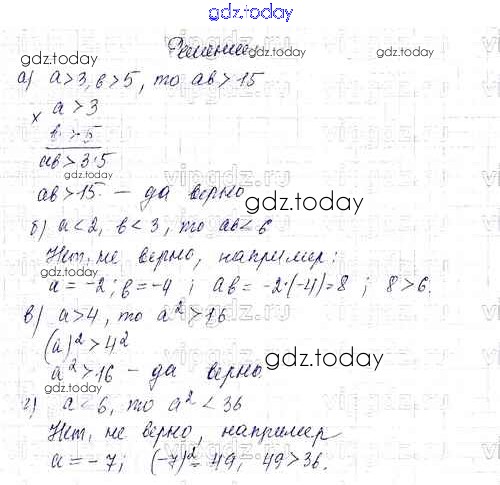 gdz.today
Решение
gdz.today gdz.today
а) a>3, в>5, то aв>15
× a>3
в>5
aв>3·5
gdz.today
aв>15 – да верно
gdz.today
б) a<2, в<3, то aв<6
Нет, не верно, например:
a=-2; в=-4; aв=-2·(-4)=8; 8>6.
в) a>4, то a²>16
(a)²>4²
a²>16 – да верно.
gdz.today
г) a<6, то a²<36
Нет, не верно, например
a=-7; (-7)²=49, 49>36.